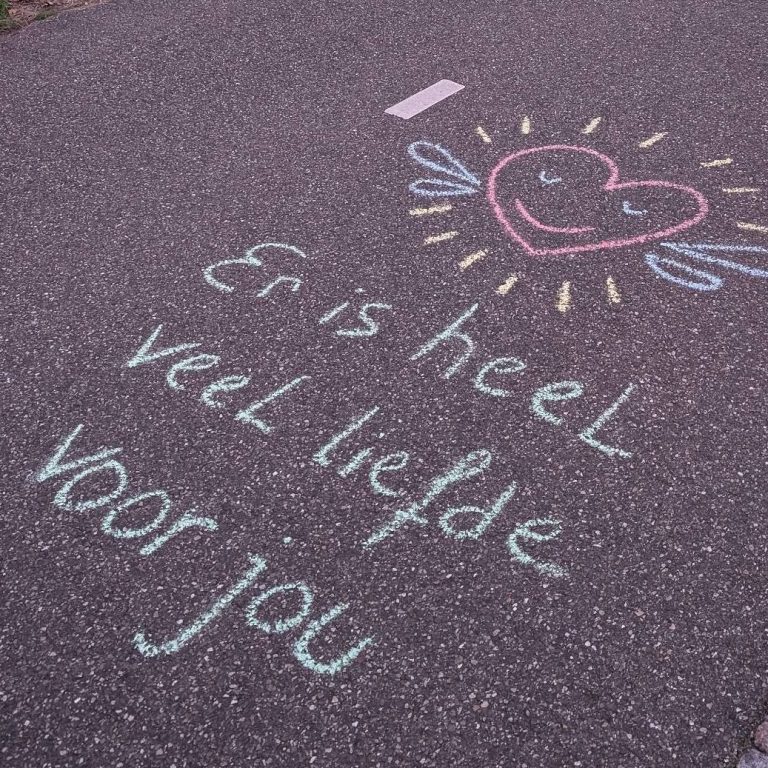 Er is heel
veel liefde
voor jou